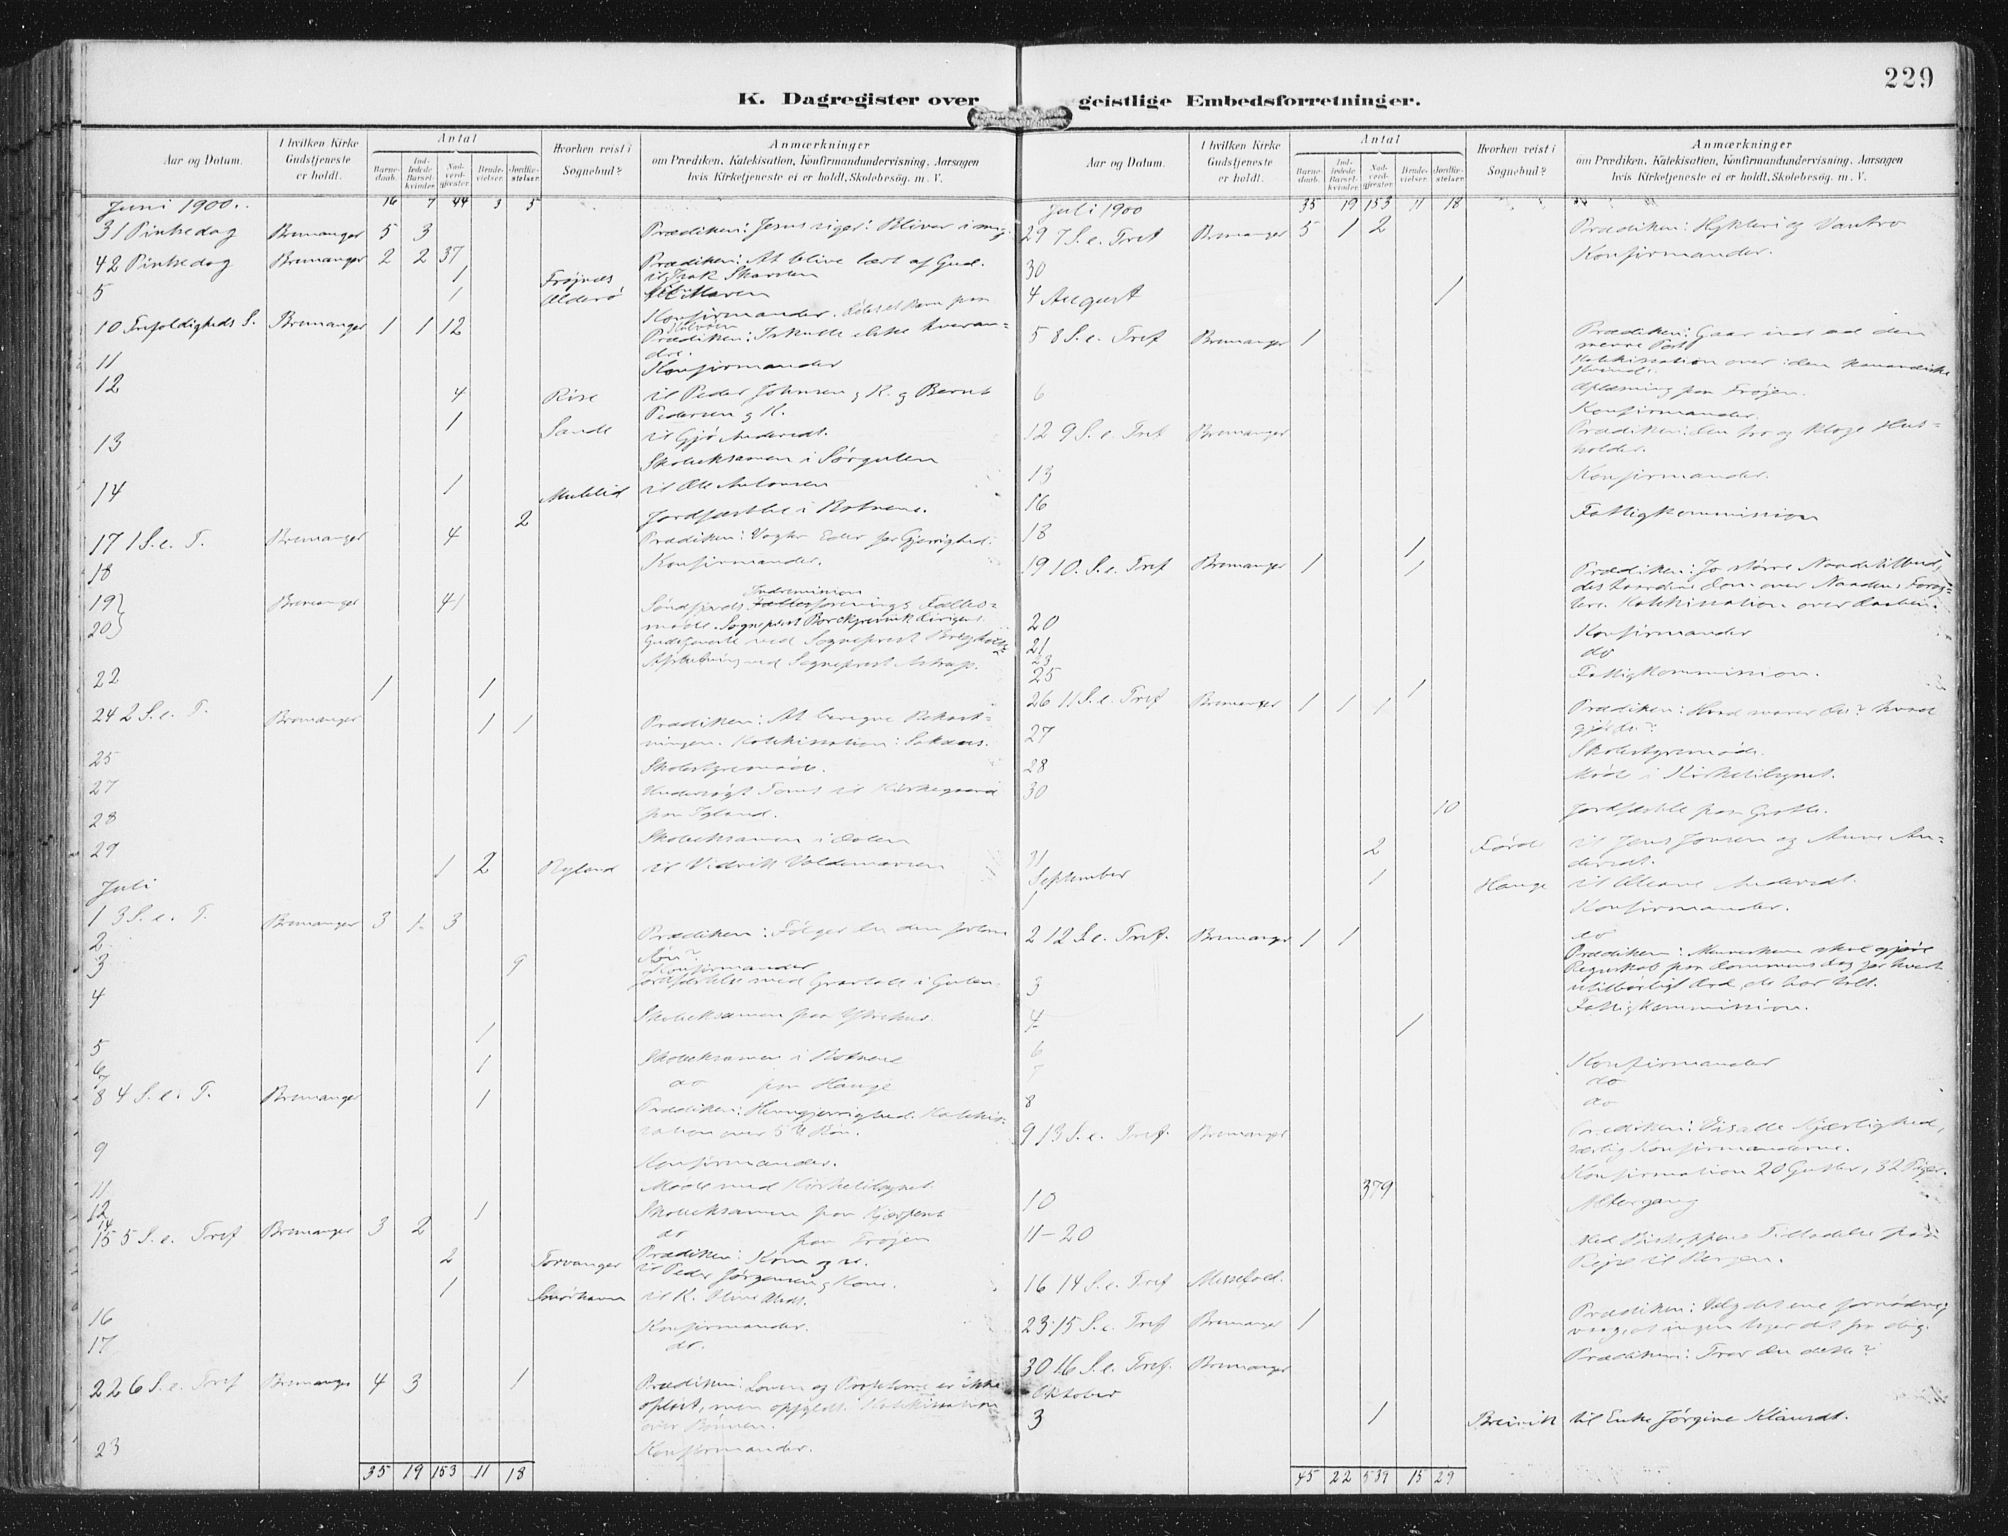 229
K. Dagregister over geistlige Embedsforretninger.
Aar og Datum.
I hvilken Kirke Gudstjeneste er holdt.
Antal
Barnedaab.
Indledede Barselkvinder.
Nadverdgjester.
Brudevielser.
Jordfæstelser.
Hvorhen reist i Sognebud?
Anmærkninger
om Prædiken, Katekisation, Konfirmandundervisning, Aarsagen
hvis Kirketjeneste ei er holdt, Skolebesøg, m. V.
Juni 1900. 16 7 44 3 5
3 1 Pintsedag Bremanger 5 3 Prædiken: Jesus siger: Bliver i mig.
4 2 Pintsedag Bremanger 2 2 37 Prædiken: At blive lært af Gud.
1 Frøjnæs til Isak
5 1 Alderø
Konfirmander.
10 Trefoldigheds S. Bremanger 1 1 12 Prædiken: I skulle elske hveran-
dre.
11 Konfirmander
12 4 Rise til Peder Johnsen og K. og Bernt
Pedersen og K.
1 Sande til Gjø Andersdt.
13 Skoleeksamen i Sørgulen
14 1 til Ole Antonsen
2 Jordfæstelse i Botnene.
17 1 S. e. T. Bremanger 4 Prædiken: Vogter Eder for Gjerrighed.
18 Konfirmander.
19 Bremanger 41 Søndfjords Indremission
20
Gudstjeneste ved Sogneprest
ved Sogneprest Astrup.
22 1 1
24 2 S. e. T. Bremanger 1 1 Prædiken: At
ningen. Katekisation:
25 Skolestyremøde.
27 Undersøgt Tomt til Kirkegaard
28 paa Igland.
29 Skoleeksamen i Dalen
1 2 Ryland til Vidrik Valdemarsen
Juli
1 3 S. e. T. Bremanger 3 1 3 Prædiken: Følger du den
2 Søn?
3 9 Konfirmander
Jordfæstelse med Gravtale i Gulen.
4 Skoleeksamen paa
1
5 1 Skoleeksamen i Botnene
6 do paa Hauge
7
8 4 S. e. T. Bremanger 1 Prædiken: Havngjerrighed. Katekis-
sation over 5te Bøn.
9 Konfirmander.
11 Møde med Kirketilsynet.
12 1 Skoleeksamen paa
14 do paa Frøjen
15 5 S. e. Tref Bremanger 3 2 Prædiken: Kom og se.
2 Torvanger til Peder Jørgensen og Kone.
1 Smørhavn til K. Oline
16 Konfirmander.
17 do.
22 6 S. e. Tref Bremanger 4 3 1 Prædiken: Loven og Profeterne er ikke
opløst, men opfyldt. Katekisation
over Bønnen.
23 Konfirmander.
35 19 153 11 18
Aar og Datum.
I hvilken Kirke Gudstjeneste er holdt.
Antal
Barnedaab.
Indledede Barselkvinder.
Nadverdgjester.
Brudevielser.
Jordfæstelser.
Hvorhen reist i Sognebud?
Anmærkninger
om Prædiken, Katekisation, Konfirmandundervisning, Aarsagen
hvis Kirketjeneste ei er holdt, Skolebesøg, m. V.
Juli 1900 35 19 153 11 18
29 7 S. e. Tref Bremanger 5 1 2 Prædiken: Hykleri og Vantro
30 Konfirmander.
4 August 1
5 8 S. e. Tref Bremanger 1 Prædiken: Gaar ind ad den
snevre Port
Katekisation over den kananæiske
Kvinde.
6 Opløsning paa Frøjen.
Konfirmander.
12 9 S. e. Tref Bremanger Prædiken: Den tro og kloge Hus-
holder.
13 Konfirmander.
16 Fattigkommission
18 1
19 10. S. e. Tref Bremanger 1 1 Prædiken: Jo større Naadetilbud,
des haardere Dom over Naadens Forag-
tere. Katekisation over Daaben.
20 Konfirmander
21 do
23
25 1 Fattigkommission.
26 11 S. e. Tref Bremanger 1 1 1 Prædiken: Hvad svarer du? hvad
27 gjør du?
Skolestyremøde.
28 Møde i Kirketilsynet.
30 10 Jordfæstelse paa Grotle.
31 2 Førde til Jens Jonsen og Anne An-
dersdt.
September 1 Hauge til Oleane Andersdt.
1 Konfirmander.
do
2 12 S. e. Tref. Bremanger 1 1 Prædiken: Menneskene skal gjøre
Regnskab paa Dommens Dag for hvert
utilbørligt Ord, de har talt.
3 Fattigkommission.
4 1
6 Konfirmander
7 do
8 do
9 13 S. e. Tref. Bremanger Prædiken: Vis alle Kjærlighed,
særlig Konfirmanderne.
Konfirmation 20 Gutter, 32 Piger.
10 379 Altergang
11-20 Med Bishoppens Tilladelse paa
Rejse til Bergen.
16 14 S. e. Tref Messefald.
23 15 S. e. Tref Bremanger 1 Prædiken: Vælg det ene fornødne,
vaag, at ingen tager det fra dig.
30 16 S. e. Tref. Bremanger Prædiken: Tror du dette?
Oktober
3 1 Breivik til Enke Jørgine Klausdt.
45 22 539 15 29